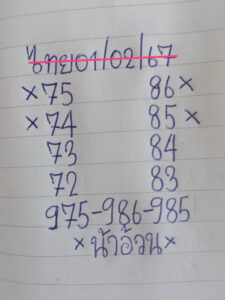 ไทย01/02/67
×75 86×
×74 85×
73 84
72 83
975-986-985
×น้าอ้วน×